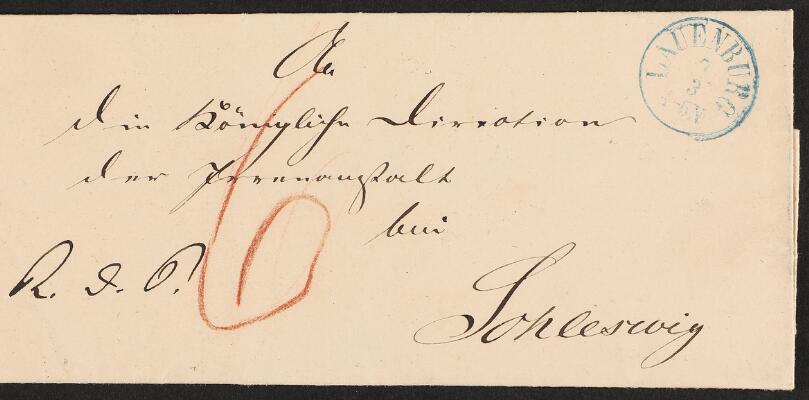 An
LAUENBURG
7
3
die Königliche Direction
der Irrenanstalt
bei
R. d. S.
6
Schleswig